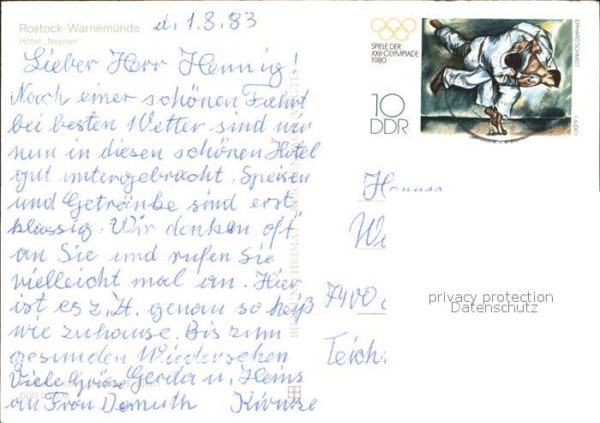 Rostock-Warnemünde
Hotel „Neptun"
d. 1.8.83
Lieber Herr Hennig!
Nach einer schönen Fahrt
bei besten Wetter sind wir
nun in diesen schönen Hotel
gut untergebracht. Speisen
und Getränke sind erst
klassig. Wir denken oft
an Sie und rufen Sie
vielleicht mal an. Hier
ist es z. Zt. genau so heiß
wie zuhause. Bis zum
gesunden Wiedersehen
Viele Grüße Gerda u. Heinz
an Frau Demuth
SPIELE DER
XXII. OLYMPIADE
1980
10
DDR
ERHARD SCHMIDT
7400
Teich
privacy protection
Datenschutz